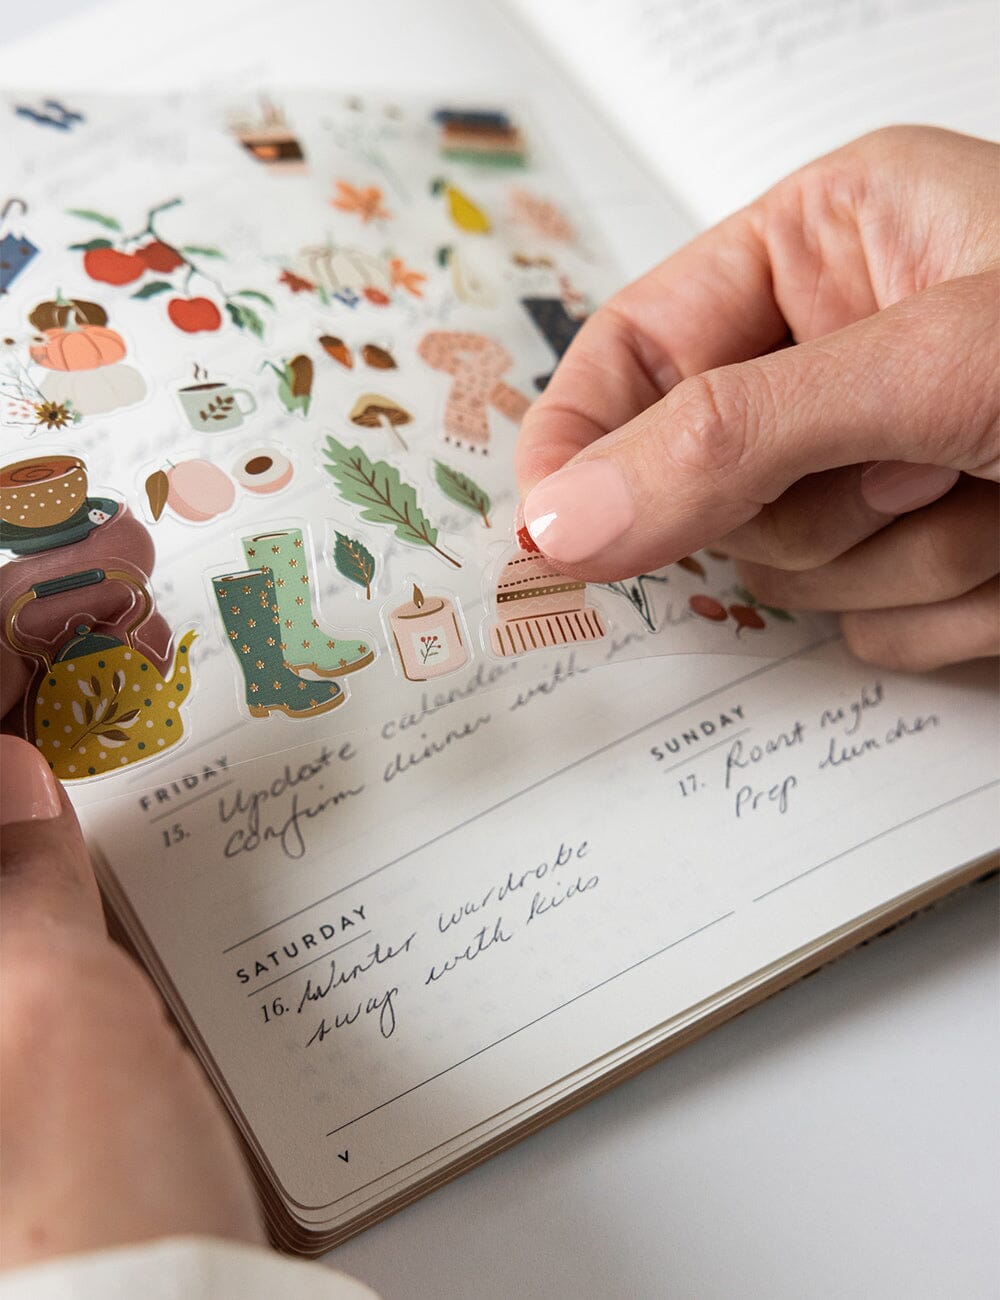 FRIDAY
15. Update calendar
confirm dinner with in
SATURDAY
16. Winter wardrobe
swap with kids
SUNDAY
17. Roast night
Prep lunches
V